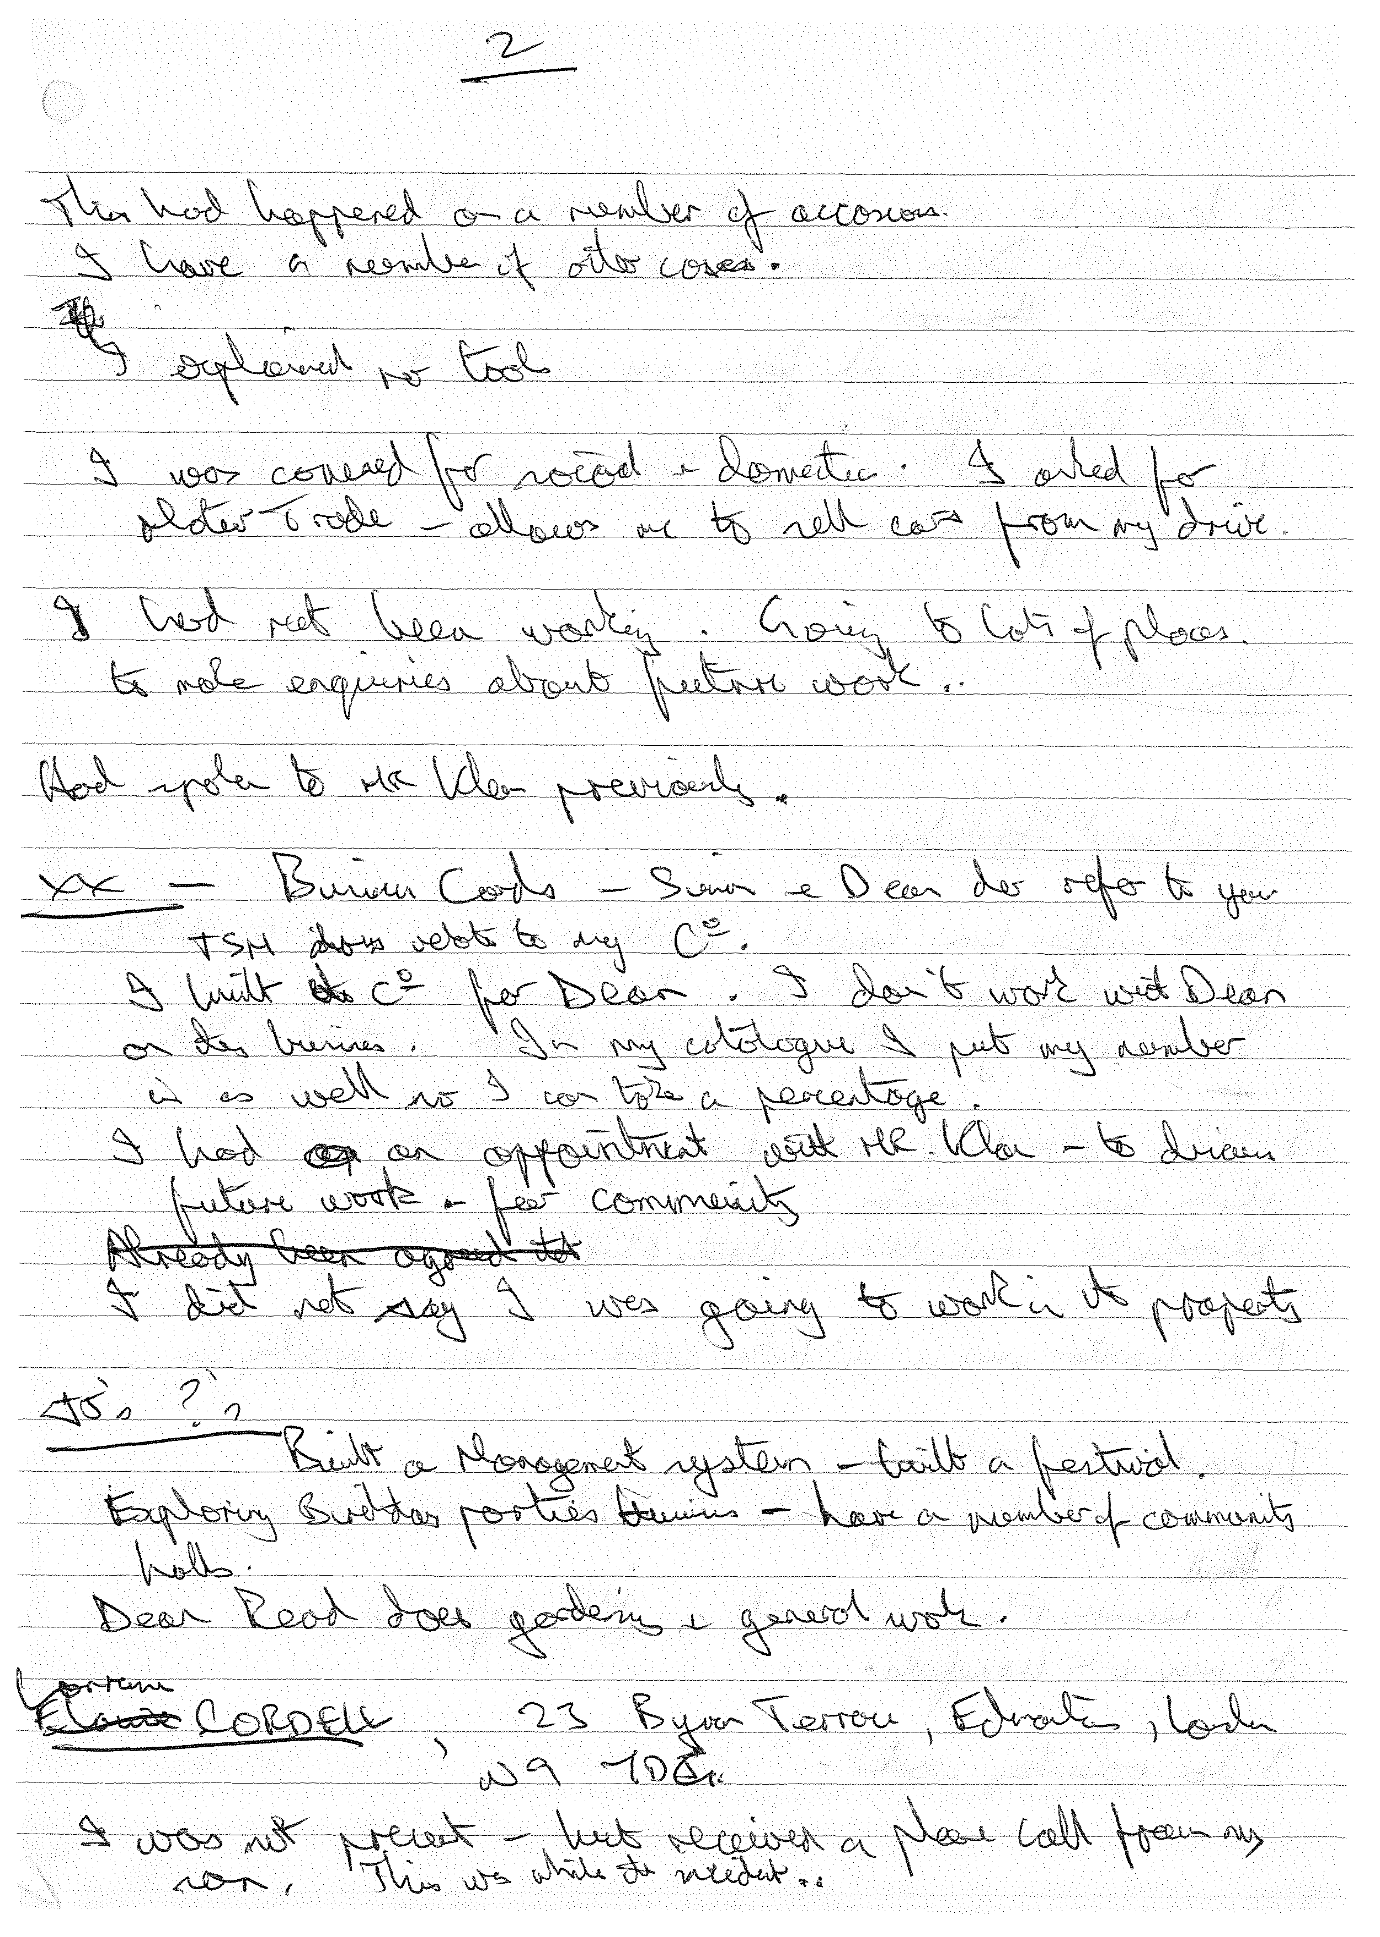 2
This had happened on a number of occasions.
I have a number of other cases.
I explained no tools
I was covered for social + domestic. I asked for
Motor Trade - allows me to sell cars from my drive.
I had not been working. Going to lots of places.
to make enquiries about future work..
Had spoken to MR Khan previously.
XX - Business Cards - Simon + Dean der refer to you
TSM does relate to my Co.
I built the Co for Dean. I don't work with Dean
on this business. In my catalogue I put my number
in as well so I can take a percentage.
I had an appointment with MR. Khan - to discuss
future work - for community
Already been agreed that
I did not say I was going to work in the property
JO's ?'s
Built a Management system - built a festival.
Exploring Birthday parties business - have a number of community
halls.
Dean Read does gardening + general work.
Lorraine
CORDELL, 23 Byron Terrace, Edmonton, London
N9 7DG.
I was not present - but received a phone call from my
son. This was while the incident..